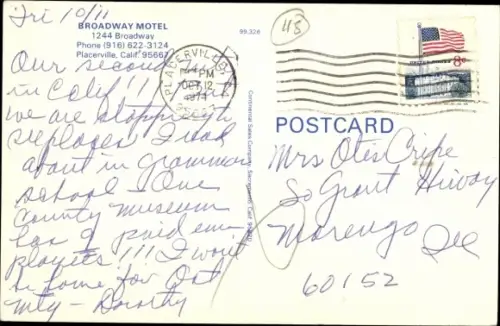 Fri 10/11
BROADWAY MOTEL
1244 Broadway
Phone (916) 622-3124
Placerville, Calif. 95667
99,328
45
PLACERVILLE
PM
OCT 12
1974
8c
Our second
in Calif!!!
we are stopping
places I read
about in grammar
school - One
county museum
has 9 paid em
ployees!!! I won't
be home for Oct
mtg - Dorothy
Continental Sales Company, Sacramento, Calif.
POSTCARD
Mrs Otis Cripe
So Grant Hiway
Marengo Ill
60152